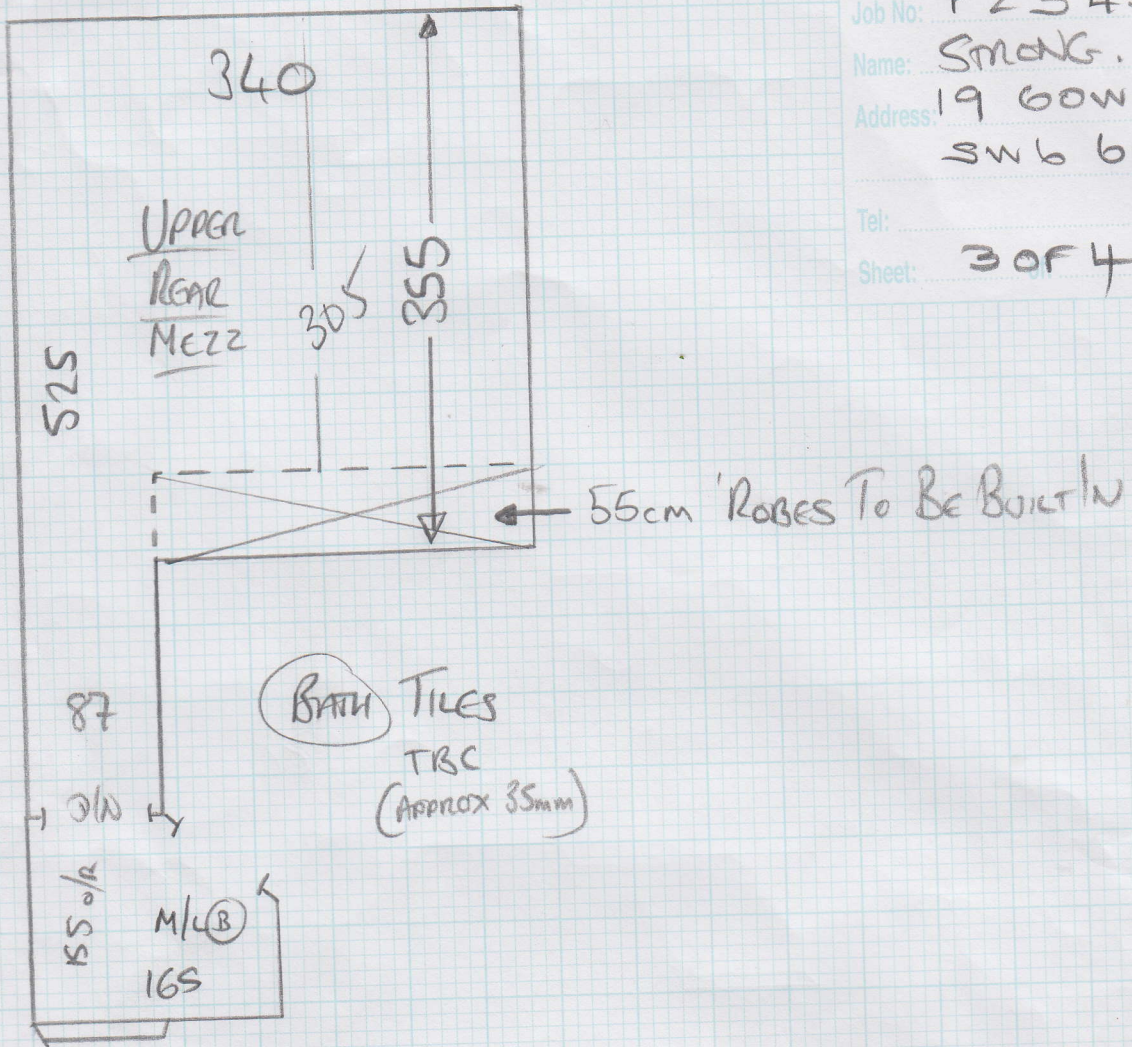 Job No:
Name: STRONG.
Address: 19 GOW
SW6 6
Tel:
Sheet: 3 OF 4
340
UPPER
REAR
MEZZ
305
355
525
55cm 'ROBES TO BE BUILT IN
87
BATH TILES
TBC
(APPROX 35mm)
D/N
155 o/R
M/L B
165